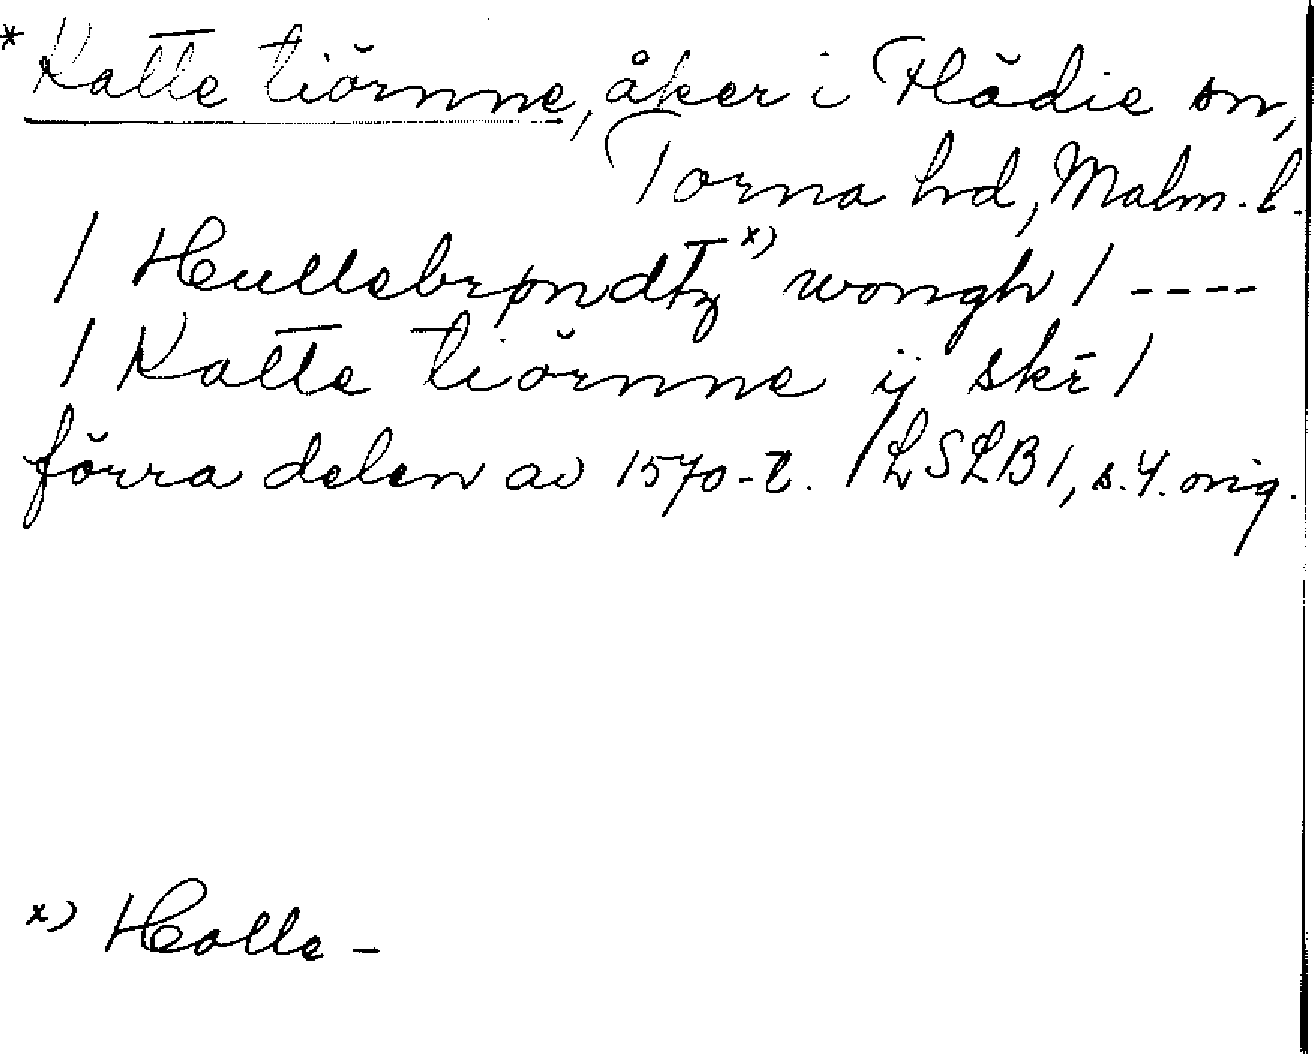 * Katte tiörnne, åker i Flädie sn,
Torna hd, Malm. l.
/ Hullebrøndtz x) wongh / ----
/ Katte tiörnne ij skē /
förra delen av 1570-t. /LSLB/, s. 4. orig.
x) Holle –